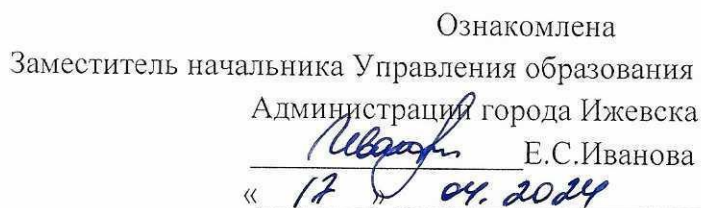 Ознакомлена
Заместитель начальника Управления образования
Администрации города Ижевска
Иванова Е.С.Иванова
« 17 » 04. 2024